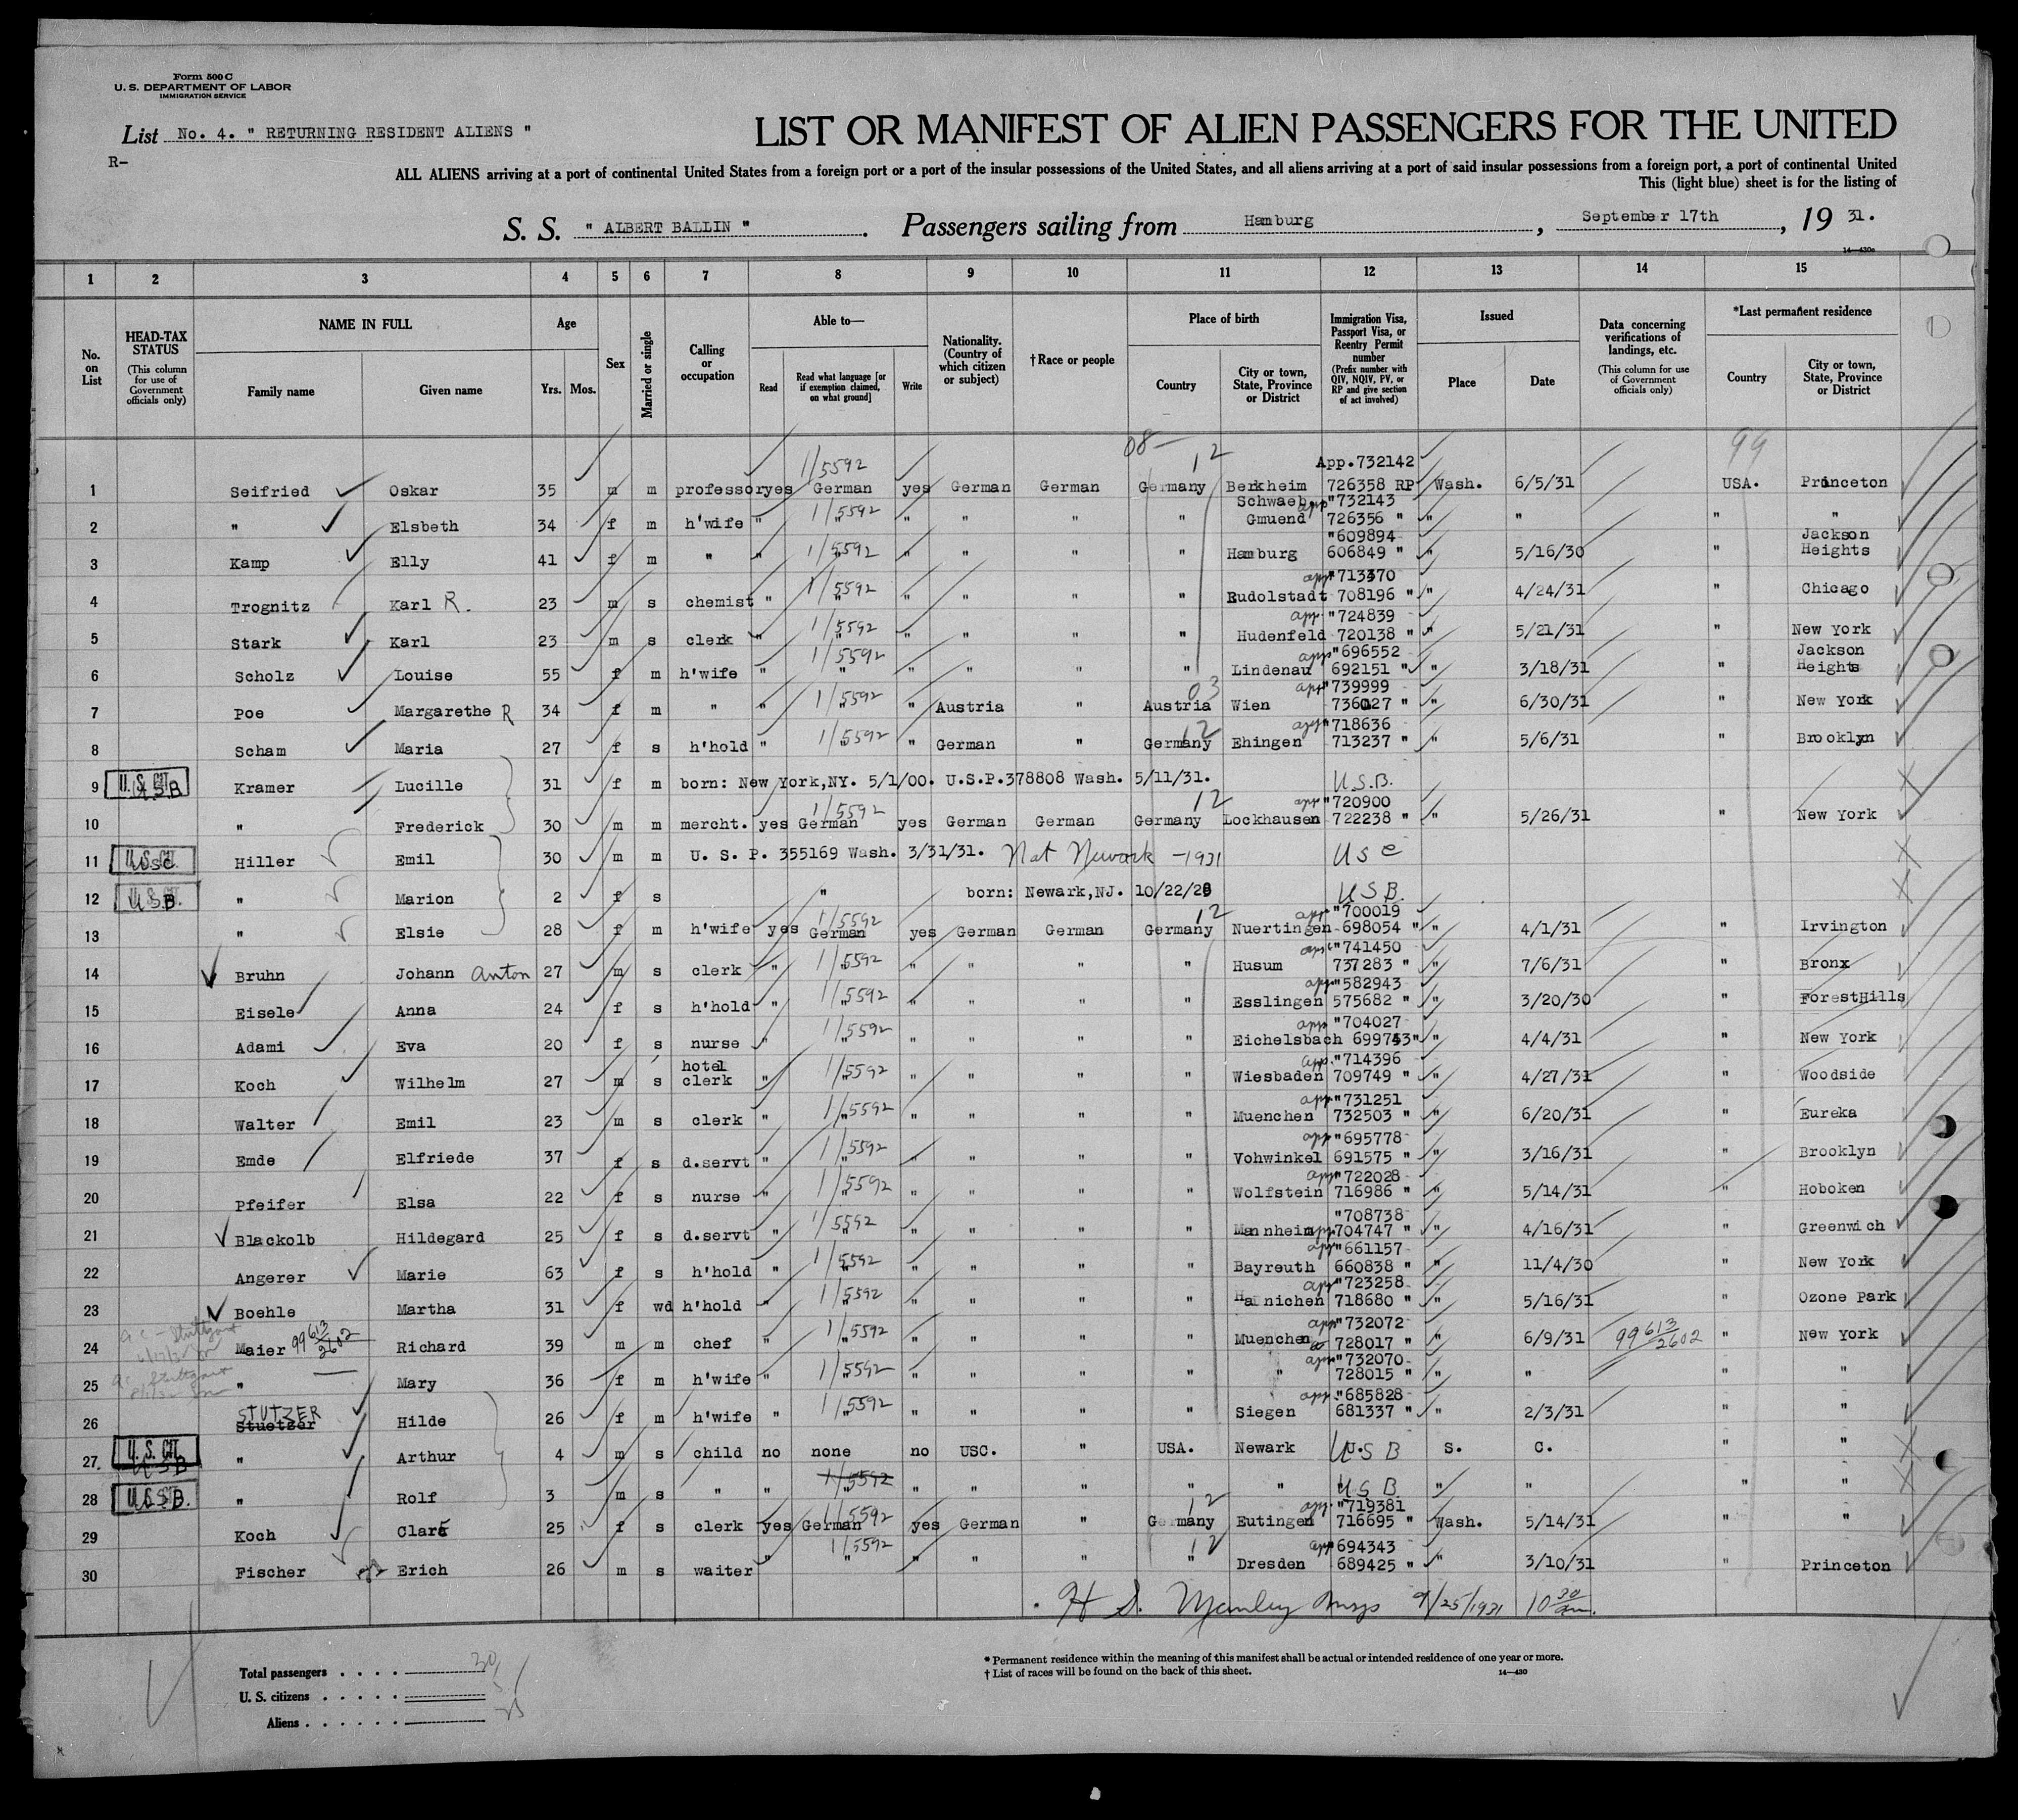 Form 500 C
U. S. DEPARTMENT OF LABOR
IMMIGRATION SERVICE
List No. 4. " RETURNING RESIDENT ALIENS "
R-
LIST OR MANIFEST OF ALIEN PASSENGERS FOR THE UNITED
ALL ALIENS arriving at a port of continental United States from a foreign port or a port of the insular possessions of the United States, and all aliens arriving at a port of said insular possessions from a foreign port, a port of continental United
This (light blue) sheet is for the listing of
S. S. " ALBERT BALLIN ". Passengers sailing from Hamburg, September 17th, 19 31.
14—430c
1 2 3 4 5 6 7 8 9 10 11 12 13 14 15
No. on List
HEAD-TAX STATUS (This column for use of Government officials only)
NAME IN FULL Family name Given name
Age Yrs. Mos.
Sex
Married or single
Calling or occupation
Able to— Read Read what language [or if exemption claimed, on what ground] Write
Nationality. (Country of which citizen or subject)
† Race or people
Place of birth Country City or town, State, Province or District
Immigration Visa, Passport Visa, or Reentry Permit number (Prefix number with QIV, NQIV, PV, or RP and give section of act involved)
Issued Place Date
Data concerning verifications of landings, etc. (This column for use of Government officials only)
*Last permanent residence Country City or town, State, Province or District
08- 12 99
1/5592 App.732142
1 Seifried Oskar 35 m m professor yes German yes German German Germany Berkheim 726358 RP Wash. 6/5/31 USA. Princeton
1/5592 Schwaeb app "732143
2 " Elsbeth 34 f m h'wife " " " " " " Gmuend 726356 " " " " "
1/5592 "609894 Jackson
3 Kamp Elly 41 f m " " " " " " " Hamburg 606849 " " 5/16/30 " Heights
1/5592 app "713370
4 Trognitz Karl R. 23 m s chemist " " " " " " Rudolstadt 708196 " " 4/24/31 " Chicago
1/5592 app "724839
5 Stark Karl 23 m s clerk " " " " " " Hudenfeld 720138 " " 5/21/31 " New York
1/5592 app "696552 Jackson
6 Scholz Louise 55 f m h'wife " " " " " " Lindenau 692151 " " 3/18/31 " Heights
1/5592 03 app "739999
7 Poe Margarethe R 34 f m " " " " Austria " Austria Wien 736027 " " 6/30/31 " New York
1/5592 12 app "718636
8 Scham Maria 27 f s h'hold " " " German " Germany Ehingen 713237 " " 5/6/31 " Brooklyn
9 U. S. CIT. USB Kramer Lucille 31 f m born: New York,NY. 5/1/00. U.S.P.378808 Wash. 5/11/31. U.S.B.
1/5592 12 app "720900
10 " Frederick 30 m m mercht. yes German yes German German Germany Lockhausen 722238 " " 5/26/31 " New York
11 Hiller Emil 30 m m U. S. P. 355169 Wash. 3/31/31. Nat Newark -1931 USC
12 " Marion 2 f s " born: Newark,NJ. 10/22/28 USB.
1/5592 12 app "700019
13 " Elsie 28 f m h'wife yes German yes German German Germany Nuertingen 698054 " " 4/1/31 " Irvington
1/5592 app "741450
14 Bruhn Johann Anton 27 m s clerk " " " " " " Husum 737283 " " 7/6/31 " Bronx
1/5592 app "582943
15 Eisele Anna 24 f s h'hold " " " " " " Esslingen 575682 " " 3/20/30 " ForestHills
1/5592 app "704027
16 Adami Eva 20 f s nurse " " " " " " Eichelsbach 699743 " " 4/4/31 " New York
hotel 1/5592 app. "714396
17 Koch Wilhelm 27 m s clerk " " " " " " Wiesbaden 709749 " " 4/27/31 " Woodside
1/5592 app "731251
18 Walter Emil 23 m s clerk " " " " " " Muenchen 732503 " " 6/20/31 " Eureka
1/5592 app "695778
19 Emde Elfriede 37 f s d.servt " " " " " " Vohwinkel 691575 " " 3/16/31 " Brooklyn
1/5592 app "722028
20 Pfeifer Elsa 22 f s nurse " " " " " " Wolfstein 716986 " " 5/14/31 " Hoboken
1/5592 "708738
21 Blackolb Hildegard 25 f s d.servt " " " " " " Mannheim app 704747 " " 4/16/31 " Greenwich
1/5592 app "661157
22 Angerer Marie 63 f s h'hold " " " " " " Bayreuth 660838 " " 11/4/30 " New York
1/5592 app "723258
23 Boehle Martha 31 f wd h'hold " " " " " " Hainichen 718680 " " 5/16/31 " Ozone Park
1/5592 app "732072
24 Maier 99613/2602 Richard 39 m m chef " " " " " " Muenchen 728017 " " 6/9/31 99613/2602 " New York
1/5592 app "732070
25 " Mary 36 f m h'wife " " " " " " " 728015 " " " " "
STUTZER 1/5592 app. "685828
26 Stuetzer Hilde 26 f m h'wife " " " " " " Siegen 681337 " " 2/3/31 " "
27 U. S. CIT. USB " Arthur 4 m s child no none no USC. " USA. Newark U.S B S. C. " "
1/5592
28 " Rolf 3 m s " " " " " " " U S B. " " " "
1/5592 12 app. "719381
29 Koch Clara 25 f s clerk yes German yes German " Germany Eutingen 716695 " Wash. 5/14/31 " "
1/5592 12 app 694343
30 Fischer Erich 26 m s waiter " " " " " " Dresden 689425 " " 3/10/31 " Princeton
H S. Manley Insp 9/25/1931 10 30 am.
Total passengers . . . . 30
U. S. citizens . . . . . 5
Aliens . . . . . . 25
* Permanent residence within the meaning of this manifest shall be actual or intended residence of one year or more.
† List of races will be found on the back of this sheet.
14—430